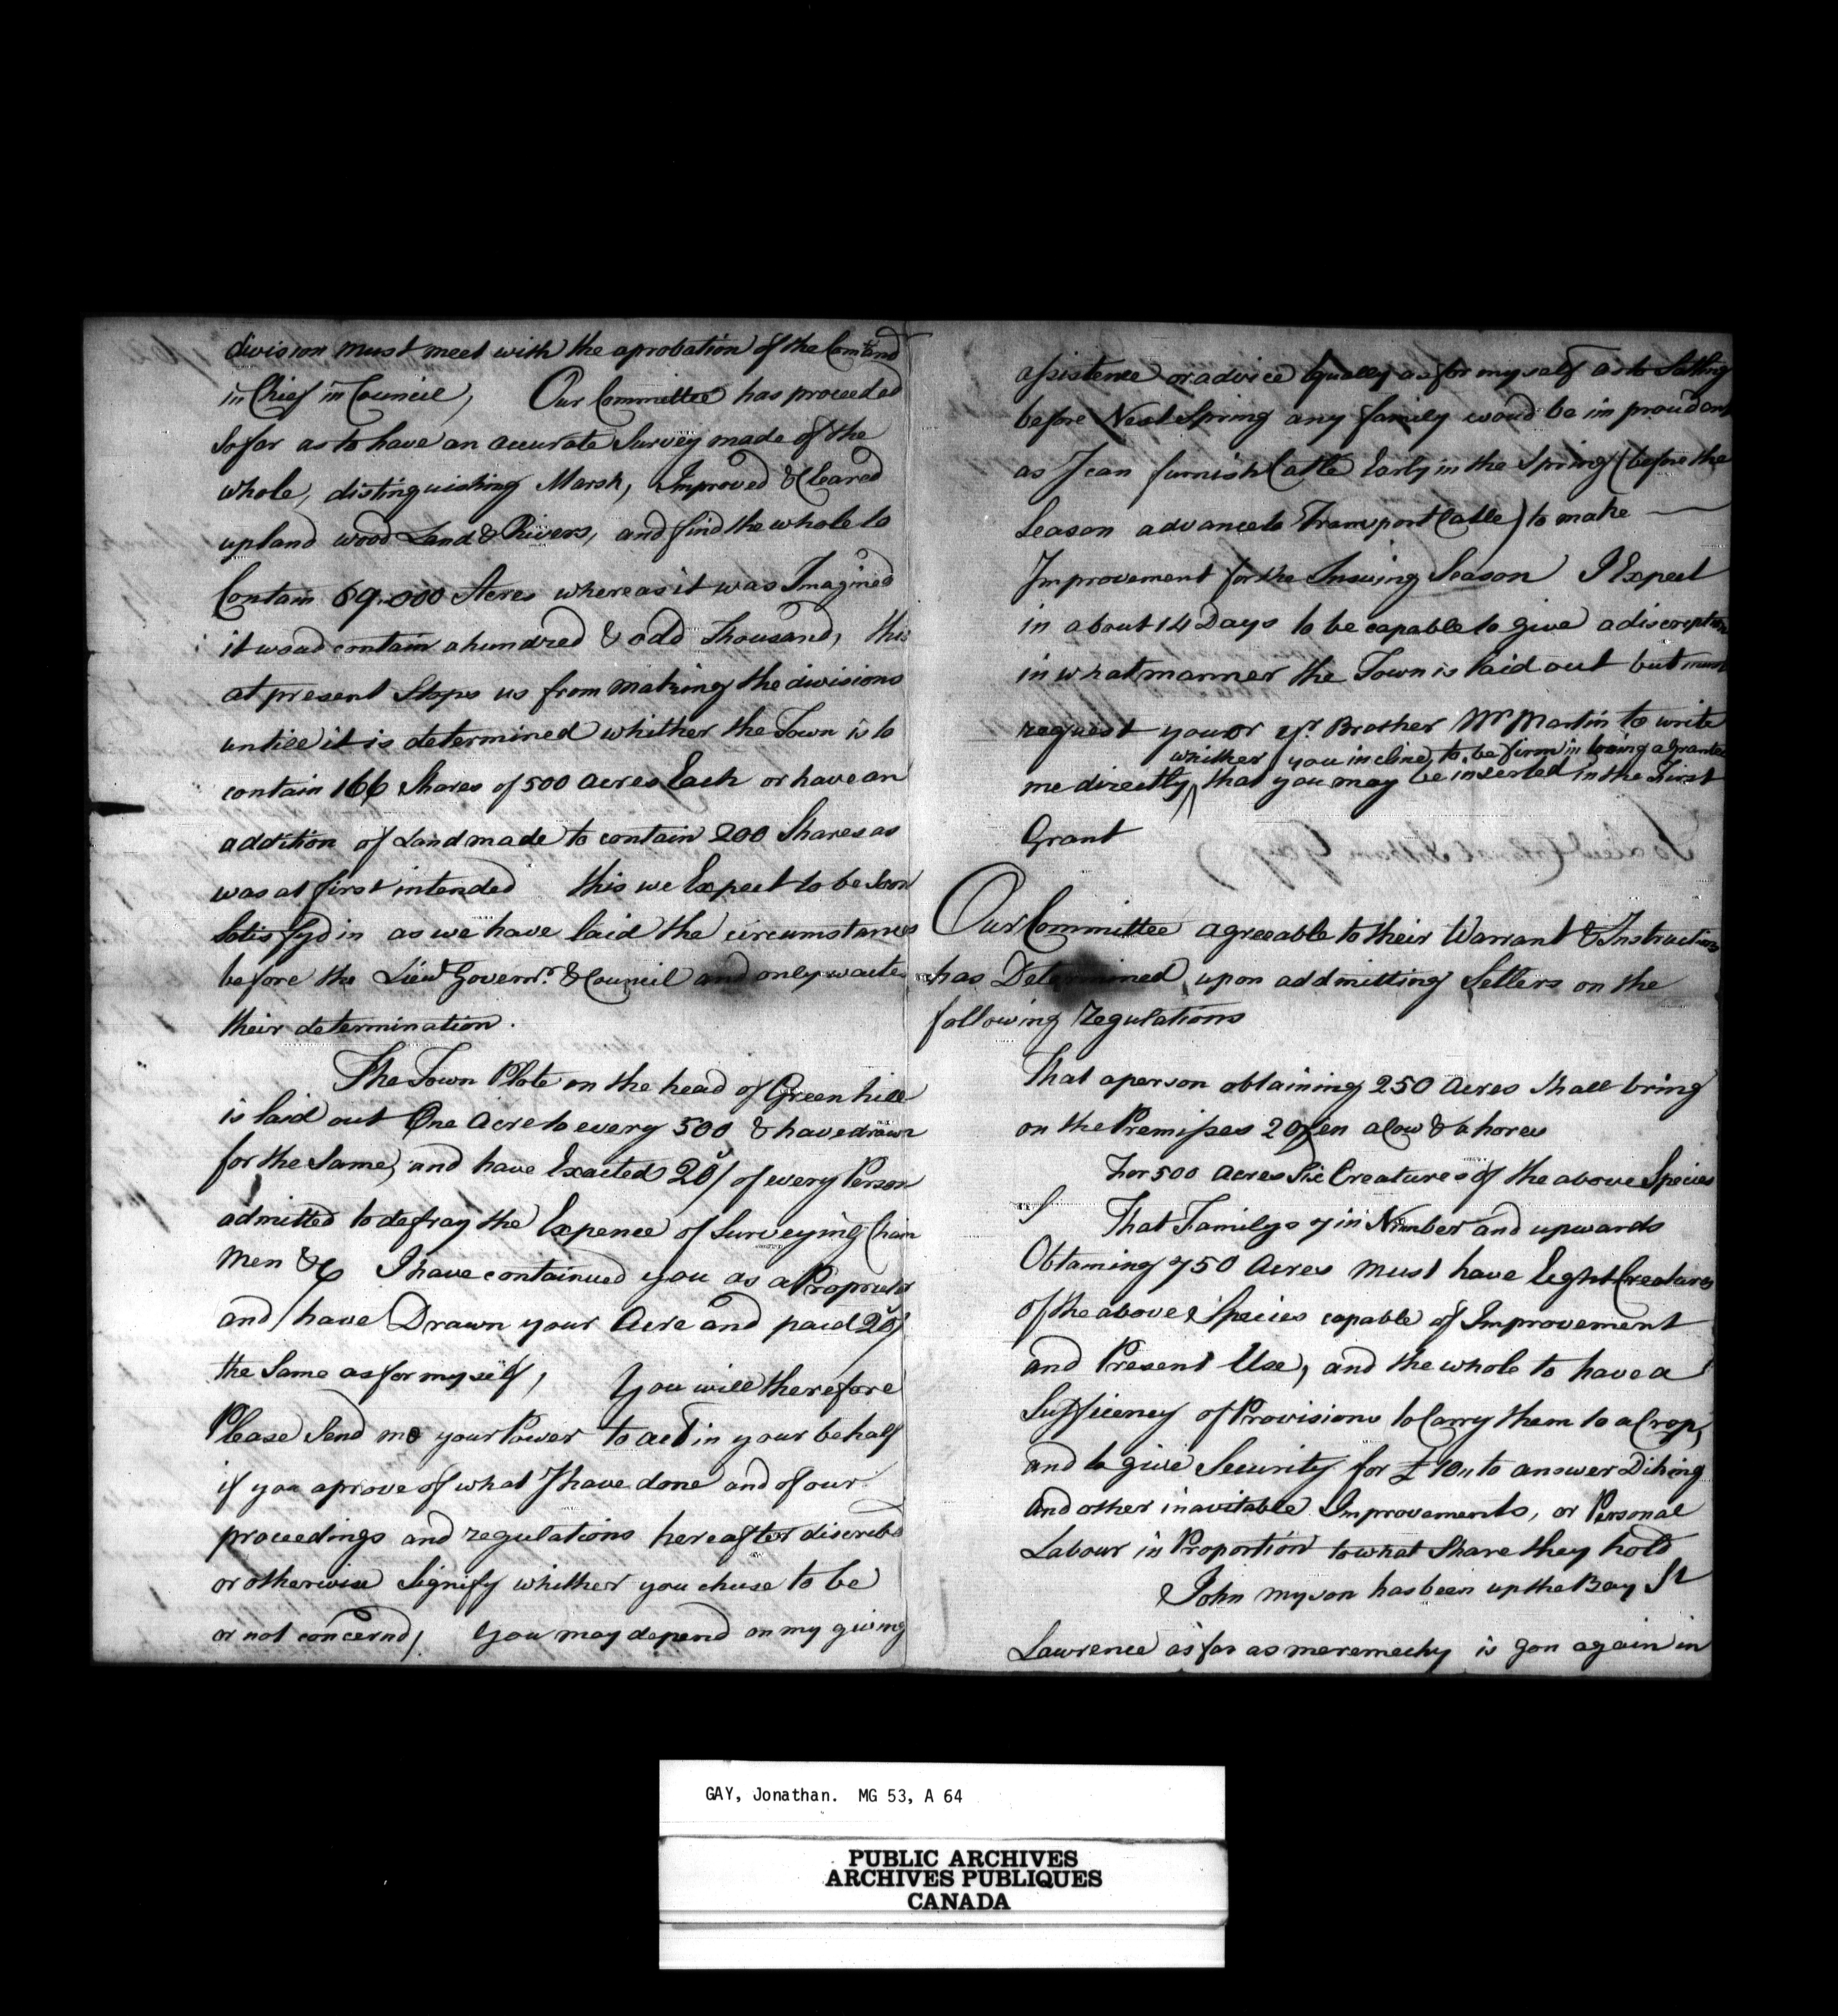 division must meet with the aprobation of the Com.and
in Chief in Council, Our Committee has proceeded
So far as to have an accurate Survey made of the
whole, distinguishing Marsh, Improved & Cleared
upland wood Land & Rivers, and find the whole to
Contain 69,000 Acres whereas it was Imagined
it woud contain a hundred & odd Thousand, this
at present Stops us from making the divisions
untill it is determined whither the Town is to
contain 166 Shares of 500 acres Each or have an
addition of Land made to contain 200 Shares as
was at first intended this we Expect to be Soon
Satisfyd in as we have laid the circumstances
before the Lieut Governr. & Council and only waite
their determination.
The Town Plote on the head of Green hill
is laid out One Acre to every 500 & have drawn
for the Same, and have Exacted 20/ of every Person
admitted to defray the Expence of Surveying Chain
Men &c I have contained you as a Proprietor
and have Drawn your Acre and paid 20/
the Same as for my self, You will therefore
Please Send me your Power to act in your behalf
if you aprove of what I have done and of our
proceedings and regulations hereafter discribe
or otherwise Signify whither you chuse to be
or not concernd, You may depend on my giving
assistence or advice Equally as for my self as to Satling
before Next Spring any family woud be imprudant
as I can furnish Catle Early in the Spring (before the
Season advance to Transport Catle) to make
Improvement for the Insuing Season I Expect
in about 14 Days to be capable to give a discreption
in what manner the Town is laid out but must
request you or yr. Brother Mr Martin to write
whither you incline to be firm in being a Grantee
me directly ^ that you may be inserted in the First
Grant
Our Committee agreeable to their Warrant & Instructions
has Determined upon addmitting Setlers on the
following regulations
That a person obtaining 250 Acres Shall bring
on the Premisses 2 Oxen a Cow & a horse
For 500 Acres Six Creatures of the above Species
That Familys 7 in Number and upwards
Obtaining 750 Acres must have Eight Creatures
of the above Species capable of Improvement
and Present Use, and the whole to have a
Sufficency of Provisions to Carry them to a Crop,
and to give Security for £10,, to answer Diking
and other inavitable Improvements, or Personal
Labour in Proportion to what Share they hold
John my son has been up the Bay St
Lawrence as far as meremechy is gon again in
GAY, Jonathan. MG 53, A 64
PUBLIC ARCHIVES
ARCHIVES PUBLIQUES
CANADA